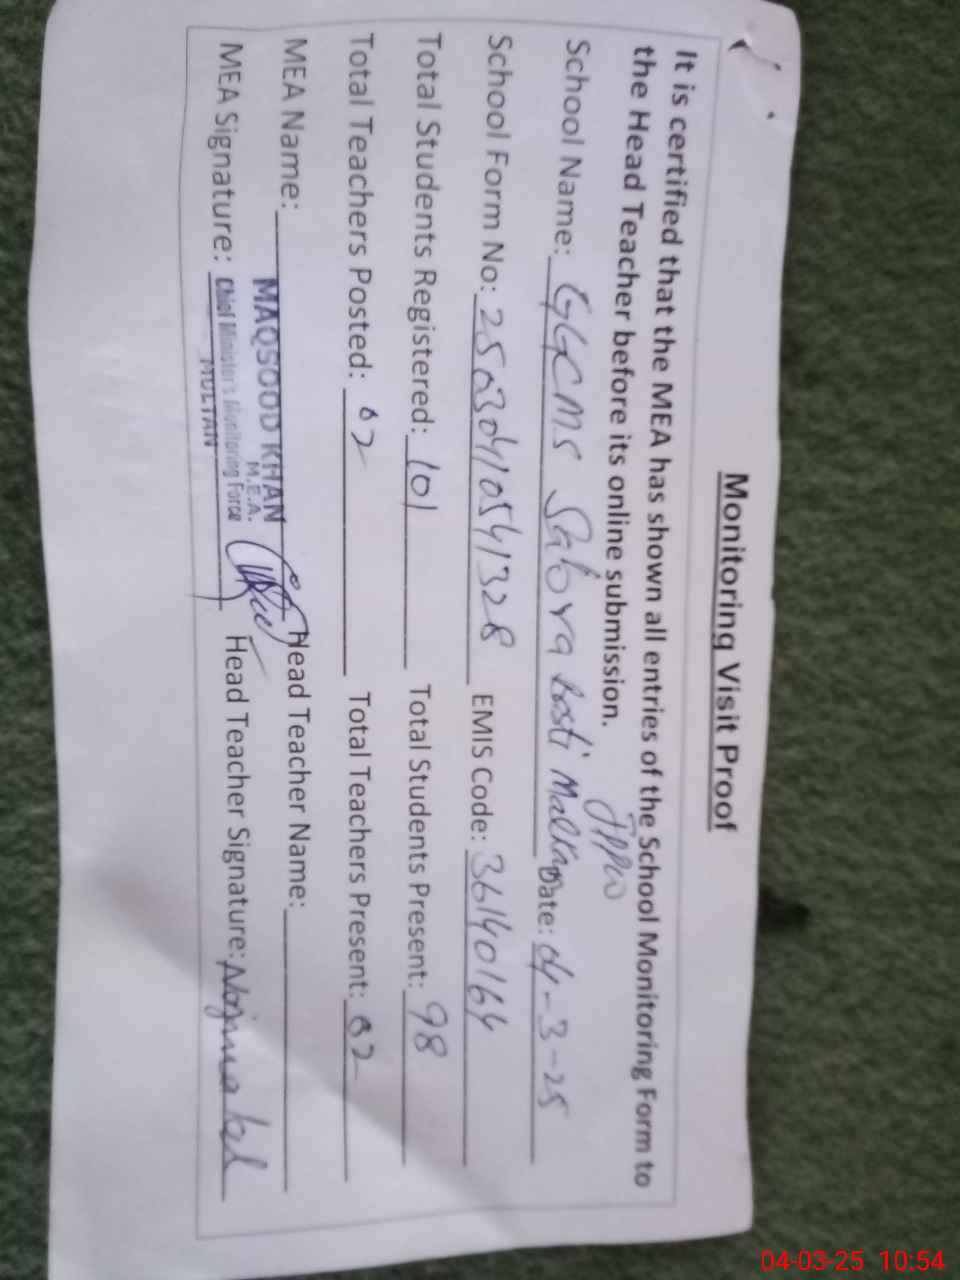 Monitoring Visit Proof
It is certified that the MEA has shown all entries of the School Monitoring Form to
the Head Teacher before its online submission.
School Name: GGCMS Sabira Basti Date: 04-3-25
School Form No: 25030410541328 EMIS Code: 36140164
Total Students Registered: 101 Total Students Present: 98
Total Teachers Posted: 02 Total Teachers Present: 02
MEA Name: MAQSOOD KHAN Head Teacher Name:
M.E.A.
MEA Signature: Chief Minister's Monitoring Force Head Teacher Signature: Najma
MULTAN
04-03-25 10:54